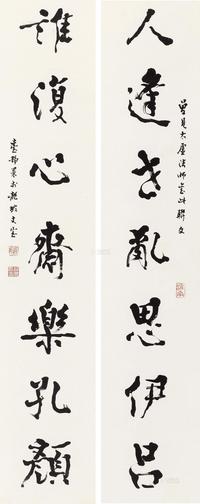 人逢世亂思伊呂
曾見大虛法師書此聯文
誰復心齋樂孔顏
臺靜農於龍坡丈室